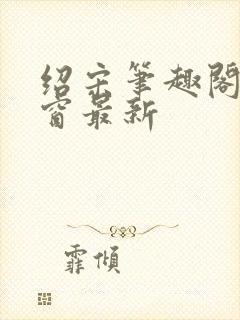 绍宋笔趣阁
窗最新
霏倾